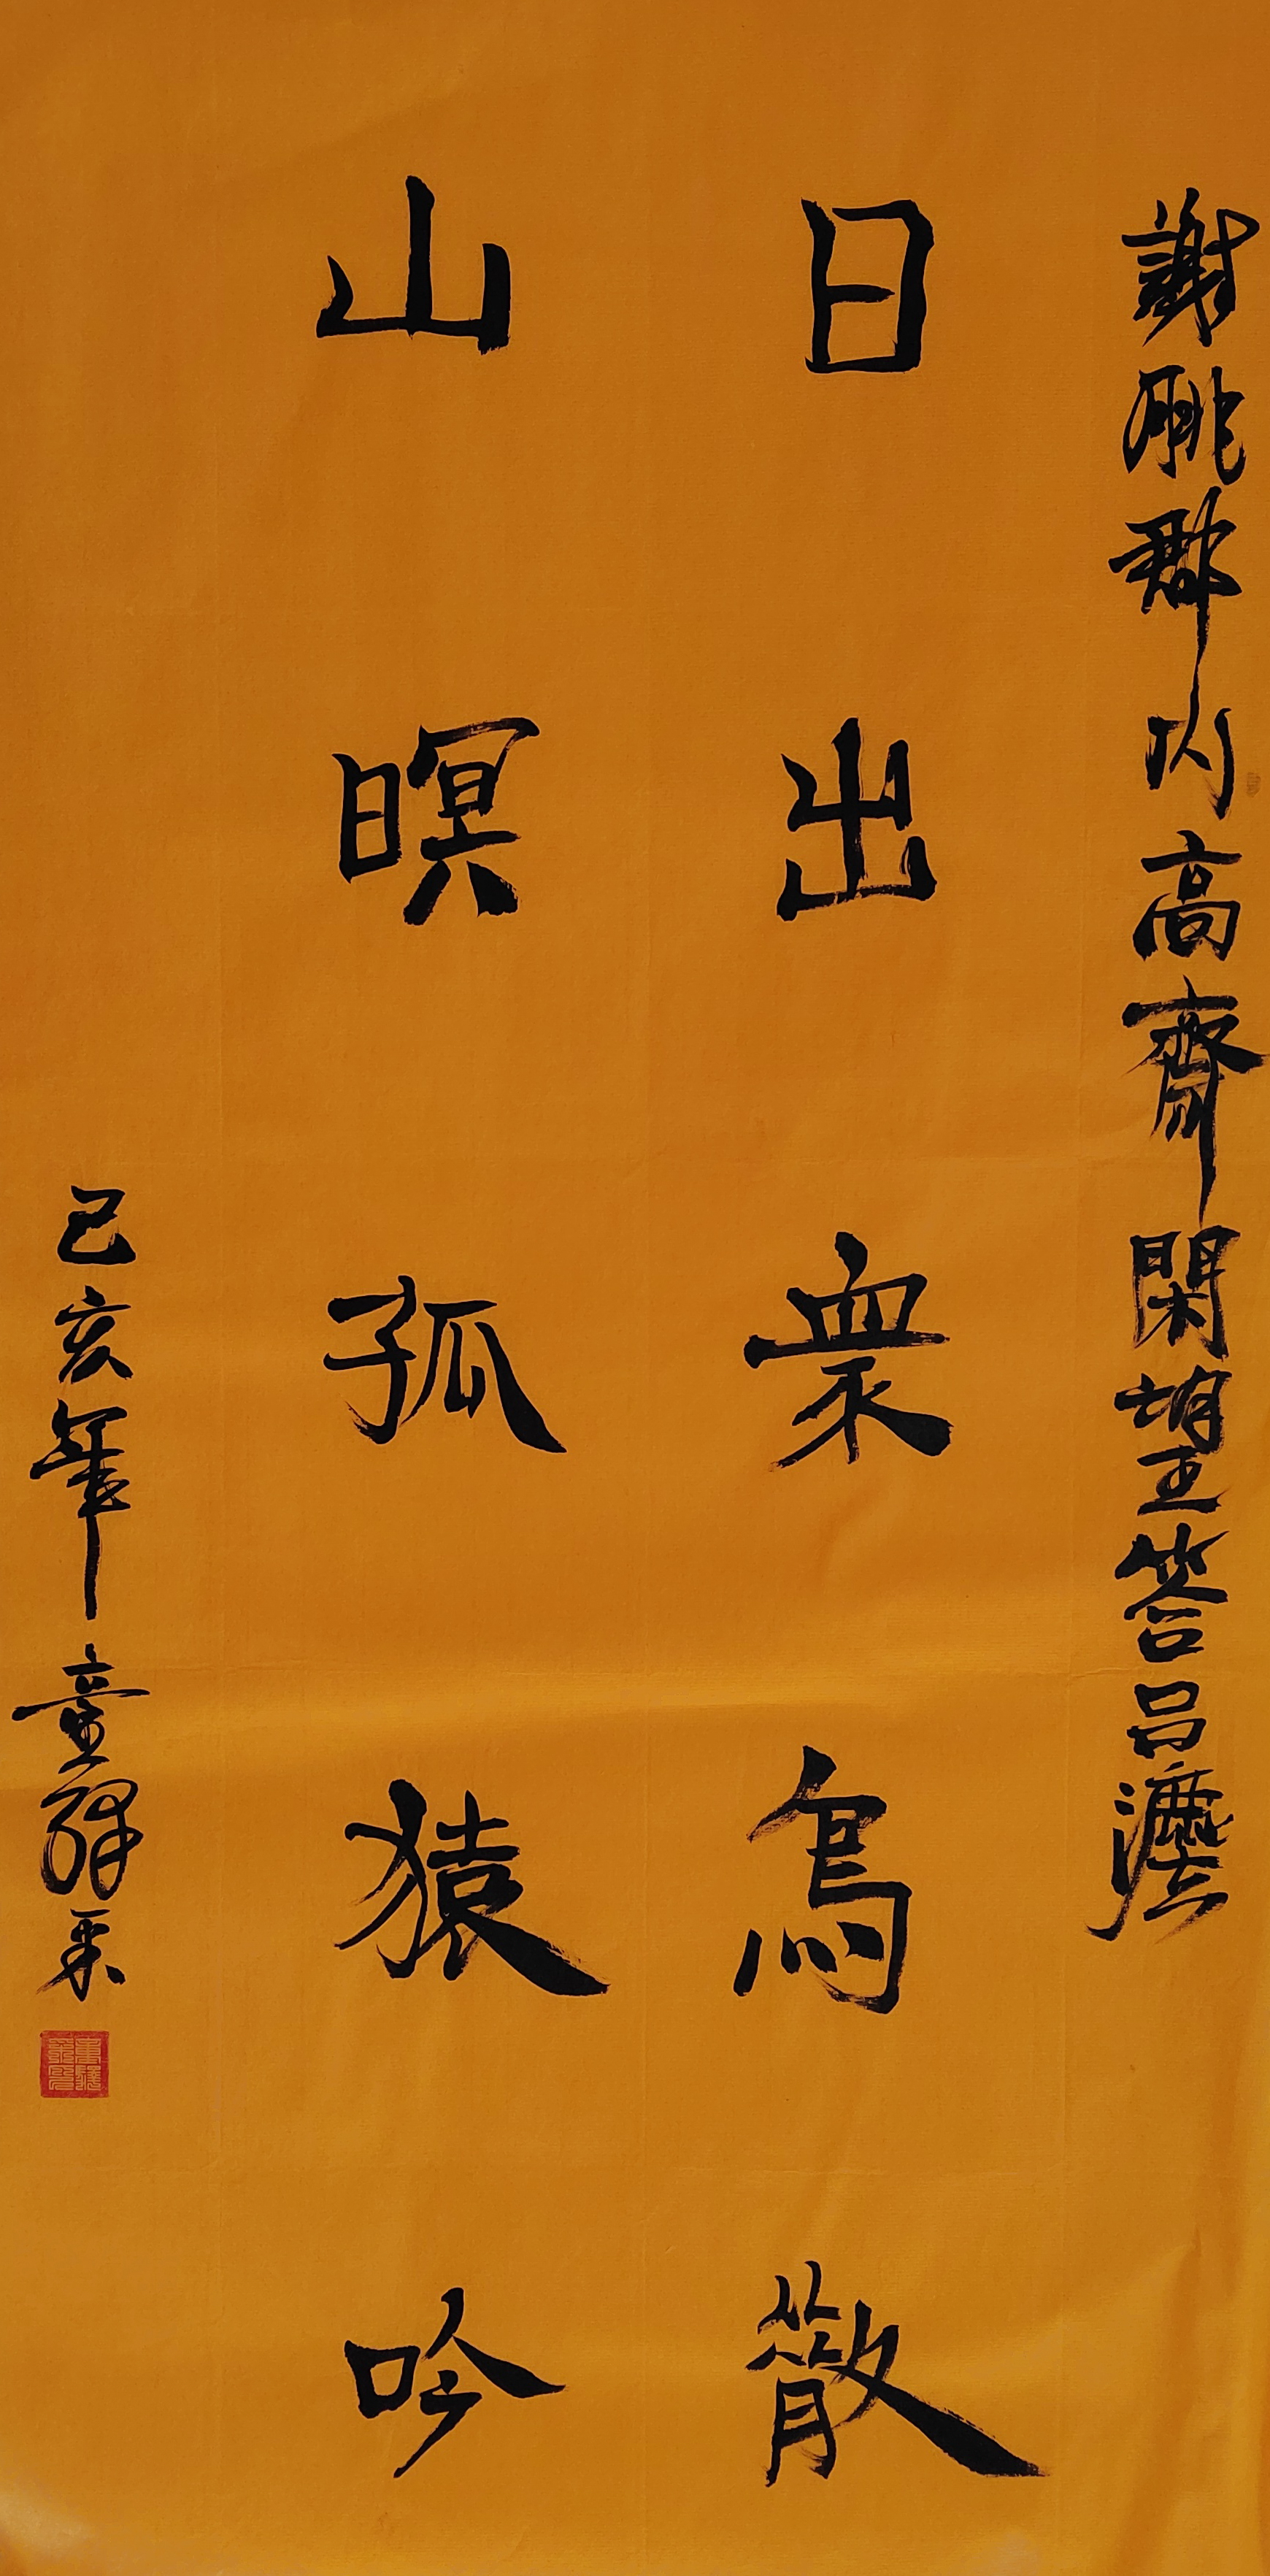 謝朓郡内高齋閑望答呂灋曹
日出衆鳥散
山暝孤猿吟
己亥年童驛采